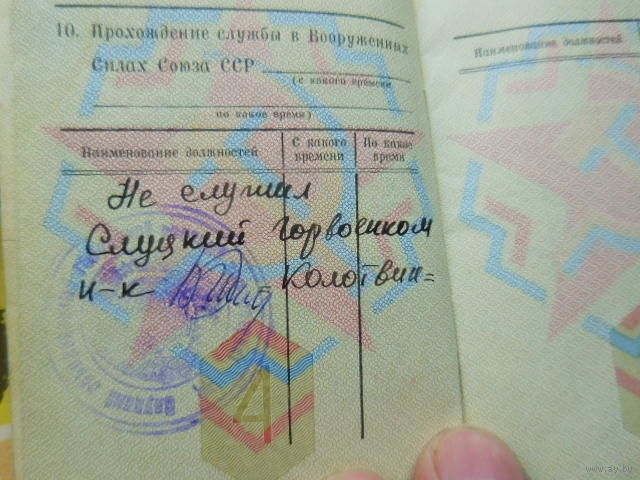 10. Прохождение службы в Вооруженных
Силах Союза ССР
(с какого времени
по какое время)
Наименование должностей
С какого времени
По какое время
Не служил
Слуцкий горвоенком
п-к =Колотвин=
Наименование должностей
www.ay.by